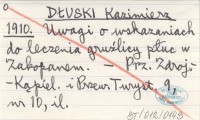 DŁUSKI Kazimierz
1910. Uwagi o wskazaniach
do leczenia gruźlicy płuc w
Zakopanem. - Prz. Zdroj.-
Kąpiel. i Przew. Turyst. 9,
nr 10, il.
BT/012/0149